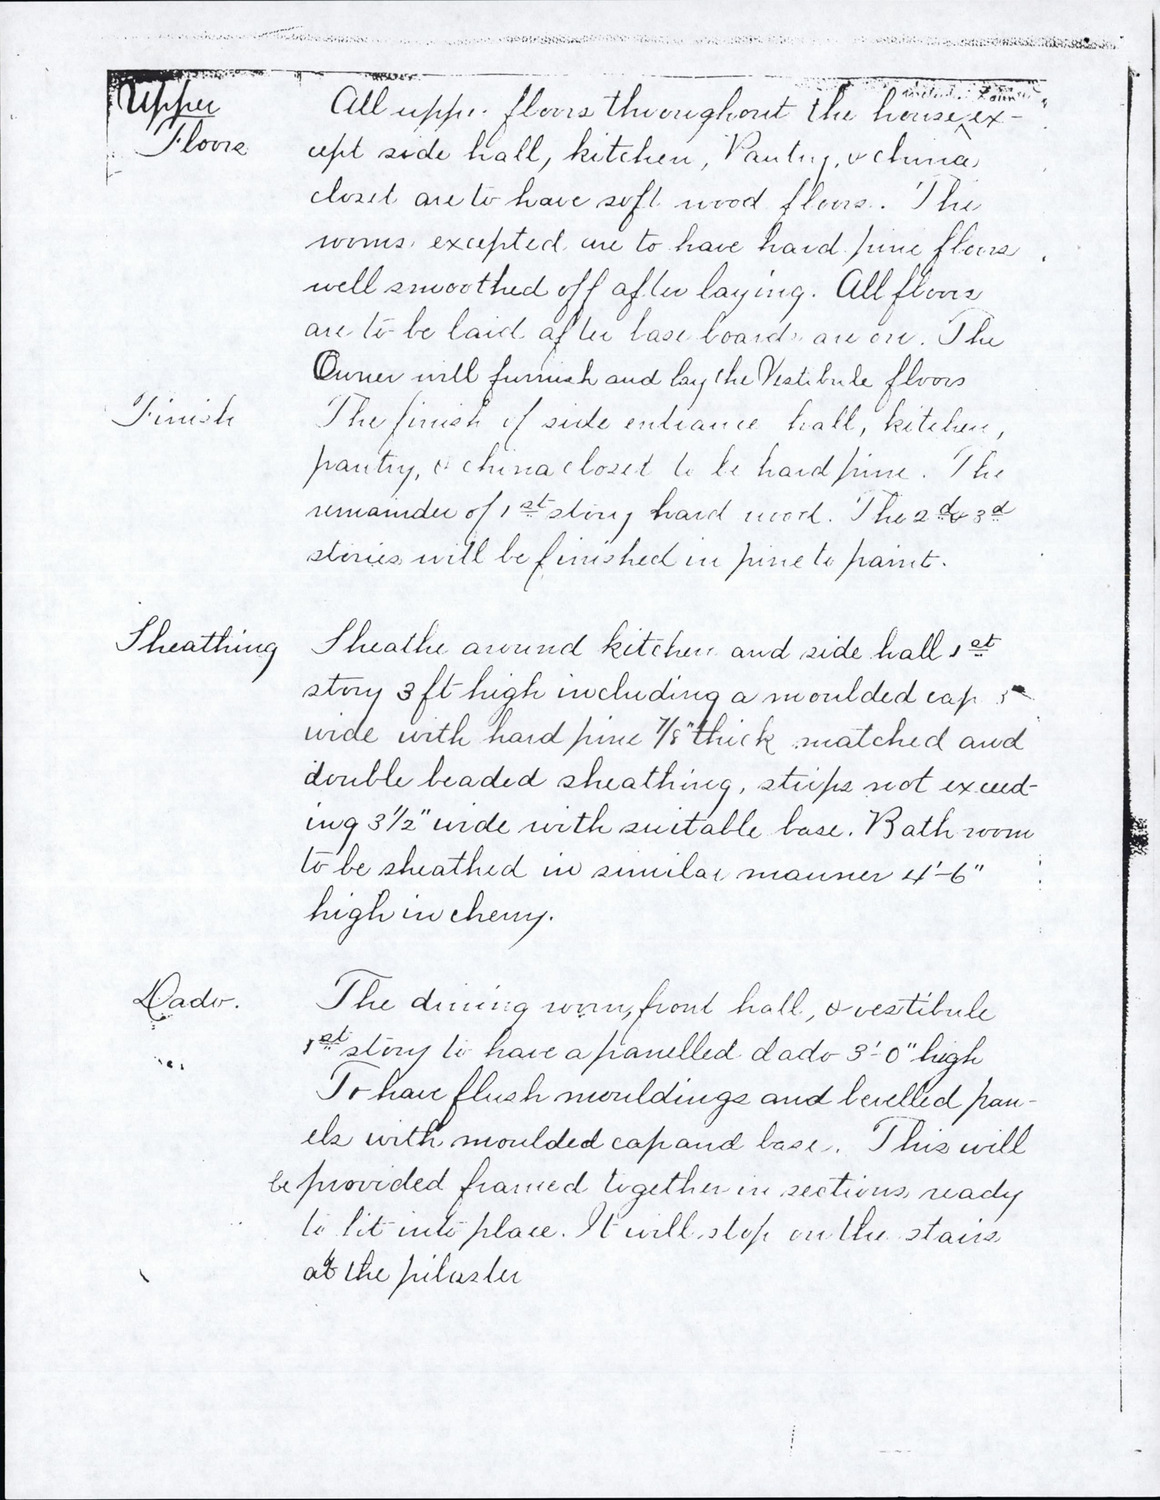 Upper
Floors
All upper floors throughout the house, ex-
cept side hall, kitchen, Pantry, & china
closet are to have soft wood floors. The
rooms excepted are to have hard pine floors
well smoothed off after laying. All floors
are to be laid after base boards are on. The
Owner will furnish and lay the Vestibule floors
Finish
The finish of side entrance hall, kitchen,
pantry, & china closet to be hard pine. The
remainder of 1st story hard wood. The 2d & 3d
stories will be finished in pine to paint.
Sheathing
Sheathe around kitchen and side hall 1st
story 3 ft high including a moulded cap
wide with hard pine 7/8" thick matched and
double beaded sheathing, strips not exceed-
ing 3 1/2" wide with suitable base. Bath room
to be sheathed in similar manner 4'-6"
high in cherry.
Dado.
The dining room, front hall, & vestibule
1st story to have a panelled dado 3'-0" high
To have flush mouldings and bevelled pan-
els with moulded cap and base. This will
be provided framed together in sections ready
to fit into place. It will stop on the stairs
at the pilaster